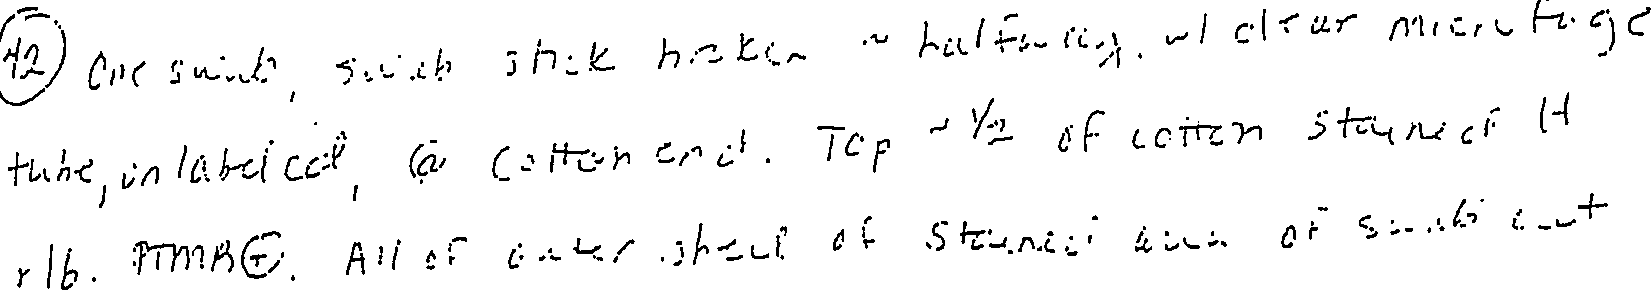 (42) One swab, swab stick broken ~ halfway, w/ clear microfuge
tube, unlabelled, @ cotton end. Top ~ 1/2 of cotton stained lt
r/b. PTMB⊕. All of outer shell of stained area of swab cut